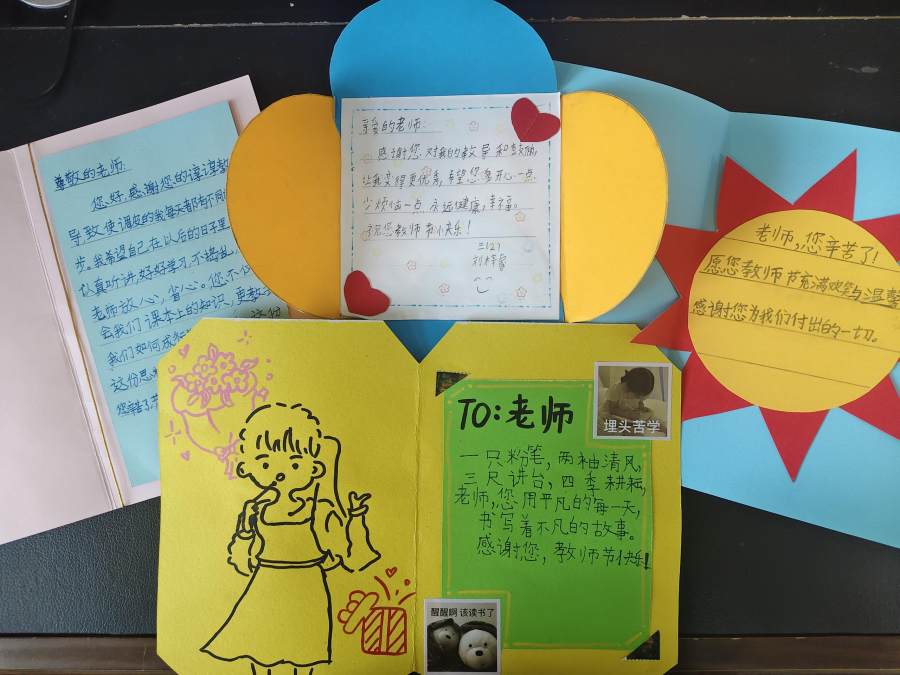 尊敬的老师
您好,感谢您的谆谆教
导致使调皮的我每天都有不同
步。我希望自己在以后的日子里
认真听讲,好好学习,不捣乱
老师放心,省心。您不仅
会我们课本上的知识,更教
我们如何成
这份
这份恩
您辛苦了
亲爱的老师:
感谢您对我的教导和鼓励,
让我变得更优秀,希望您多开心一点
少烦恼一点,永远健康,幸福。
祝您教师节快乐!
三(2)
老师,您辛苦了!
愿您教师节充满欢笑与温馨
感谢您为我们付出的一切。
TO:老师
埋头苦学
一只粉笔,两袖清风,
三尺讲台,四季耕耘,
老师,您用平凡的每一天,
书写着不凡的故事。
感谢您,教师节快乐!
醒醒啊 该读书了